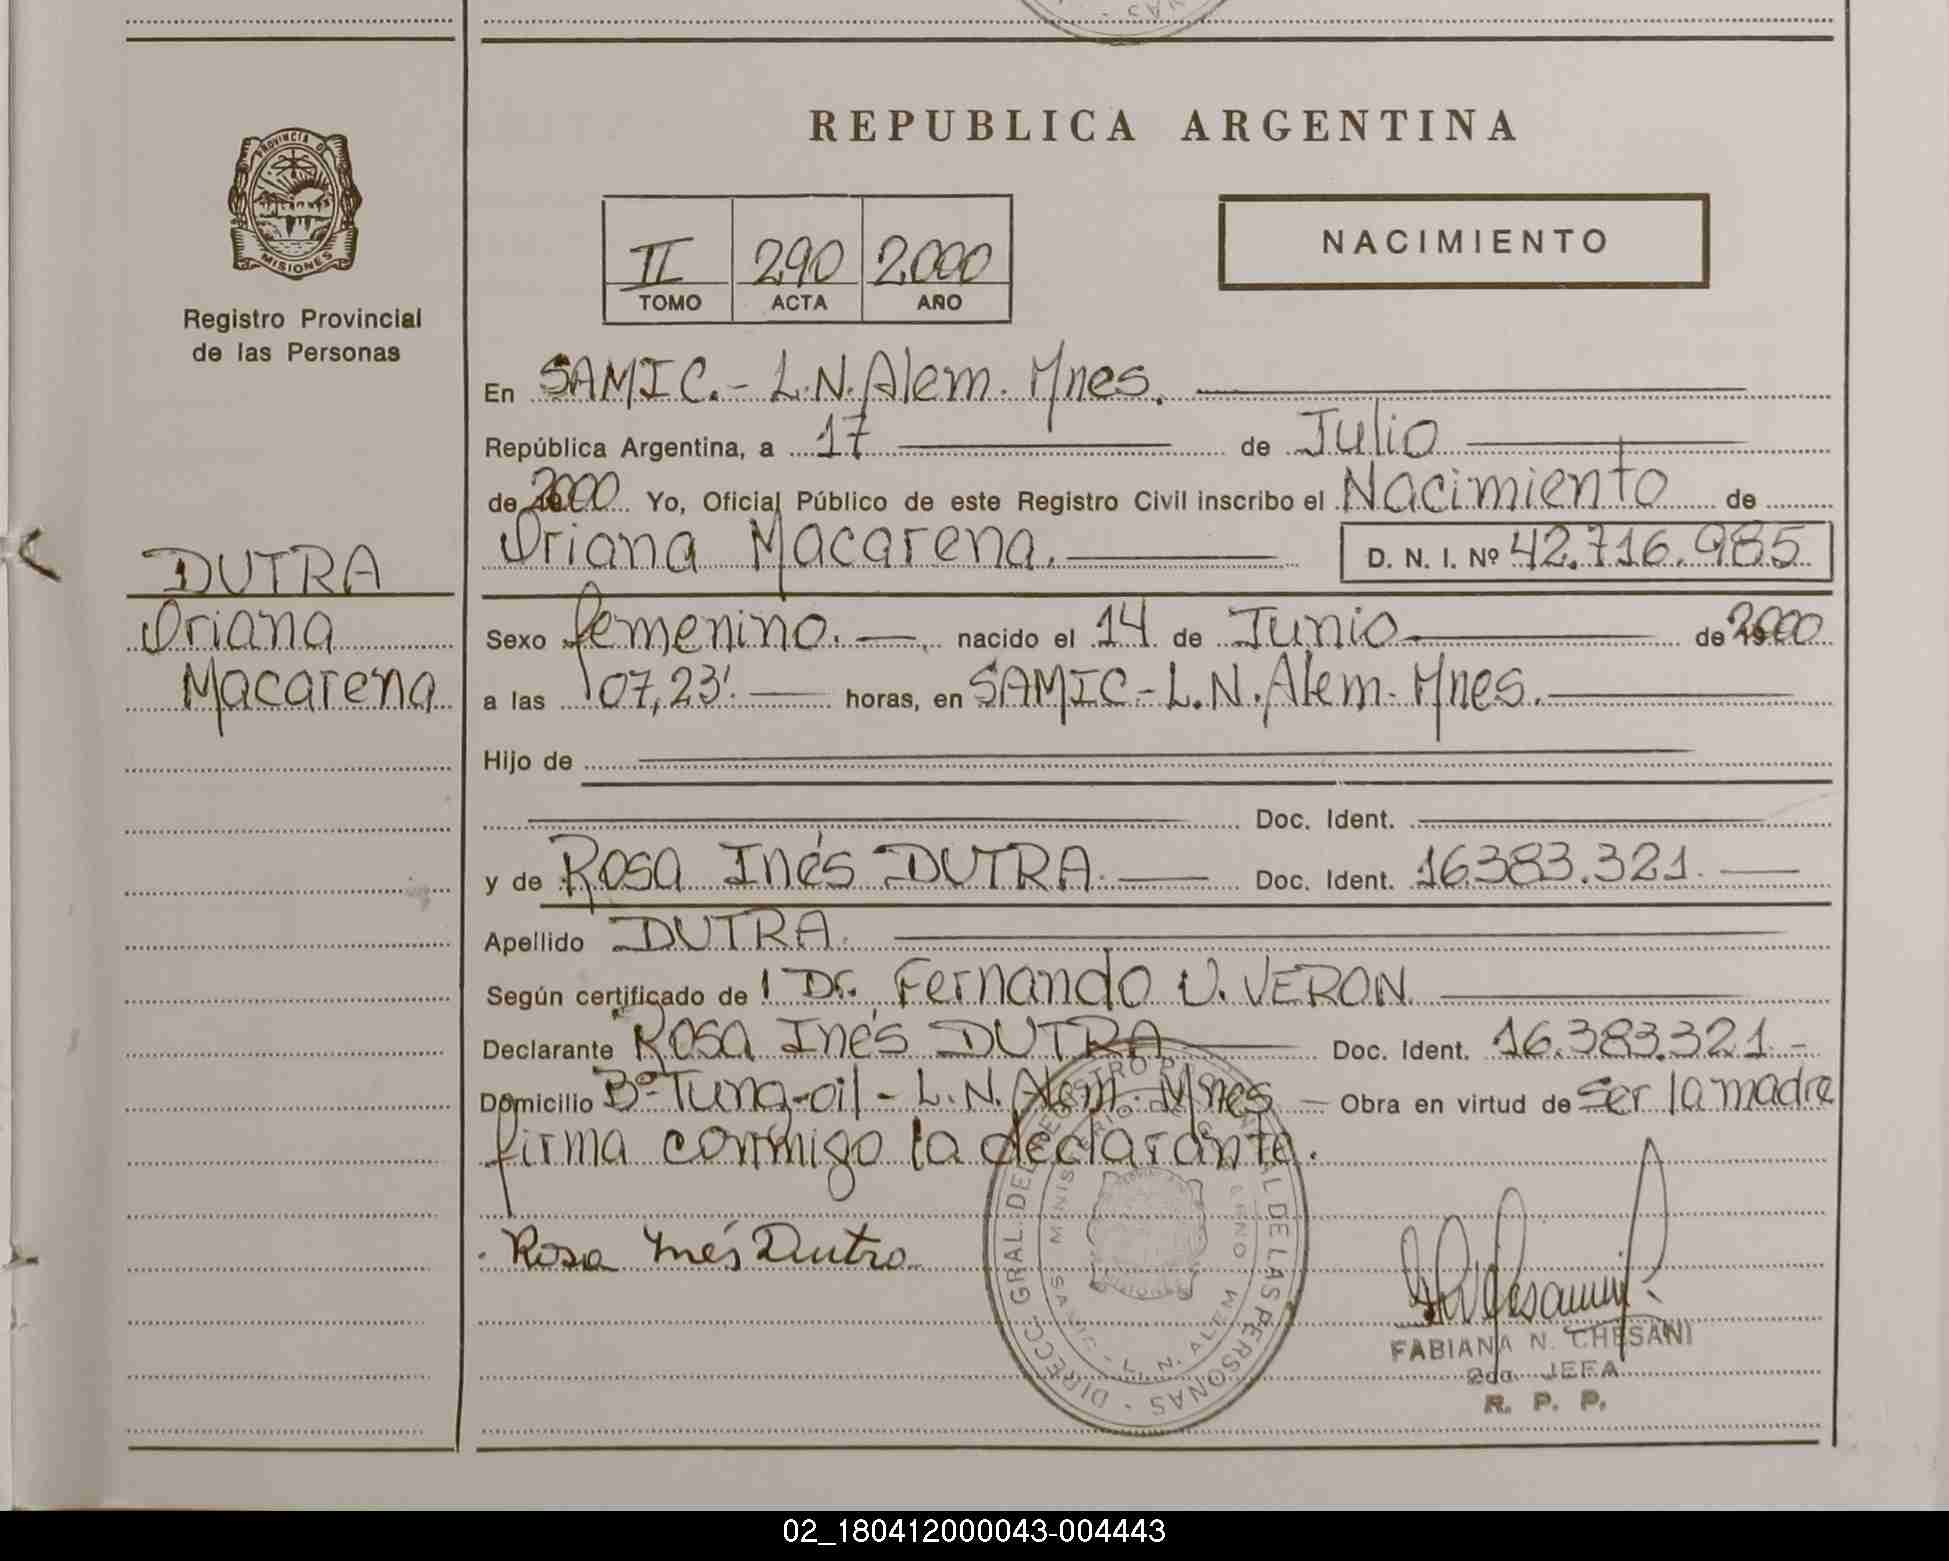 REPUBLICA ARGENTINA
PROVINCIA DE
MISIONES
Registro Provincial
de las Personas
II 290 2000
TOMO ACTA AÑO
NACIMIENTO
DUTRA
Oriana
Macarena
En SAMIC.- L.N.Alem. Mnes.
República Argentina, a 17 de Julio
de 2000 Yo, Oficial Público de este Registro Civil inscribo el Nacimiento de
Oriana Macarena. D. N. I. Nº 42.716.985
Sexo femenino. nacido el 14 de Junio de 2000
a las 07,23'. horas, en SAMIC-L.N.Alem. Mnes.
Hijo de
Doc. Ident.
y de Rosa Inés DUTRA. Doc. Ident. 16.383.321.
Apellido DUTRA.
Según certificado de l Dr. Fernando U. VERON.
Declarante Rosa Inés DUTRA Doc. Ident. 16.383.321.-
Domicilio Bº Tung-oil - L.N. Alem. Mnes - Obra en virtud de ser la madre
firma conmigo la declarante.
Rosa Inés Dutra
DIRECC. GRAL. DEL REGISTRO PROVINCIAL DE LAS PERSONAS
SAMIC - L. N. ALEM
FABIANA N. CHESANI
2da. JEFA
R. P. P.
02_180412000043-004443